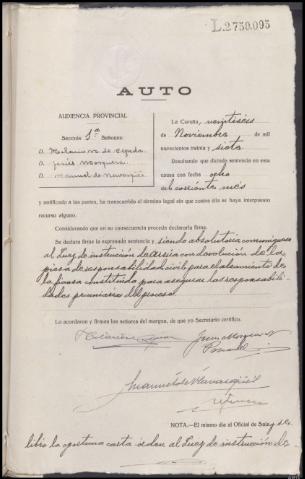 L.2750.095
AUTO
AUDIENCIA PROVINCIAL
Sección 1ª Señores
D.
D. Jesús
D. Manuel de
La Coruña, veintiseis
de Noviembre de mil
novecientos treinta y siete
Resultando que dictada sentencia en esta
causa con fecha ocho
del corriente mes
y notificada a las partes, ha transcurrido el término legal sin que contra ella se haya interpuesto
recurso alguno.
Considerando que en su consecuencia procede declararla firme.
Se declara firme la expresada sentencia y siendo absolutoria comuníquese
al Juez de instrucción de con devolución de la
pieza de responsabilidad civil para
la fianza constituida para asegurar las responsabili-
dades pecuniarias del proceso
Lo acordaron y firman los señores del margen, de que yo Secretario certifico.
NOTA.—El mismo día el Oficial de Sala
libro la oportuna carta orden al Juez de instrucción de